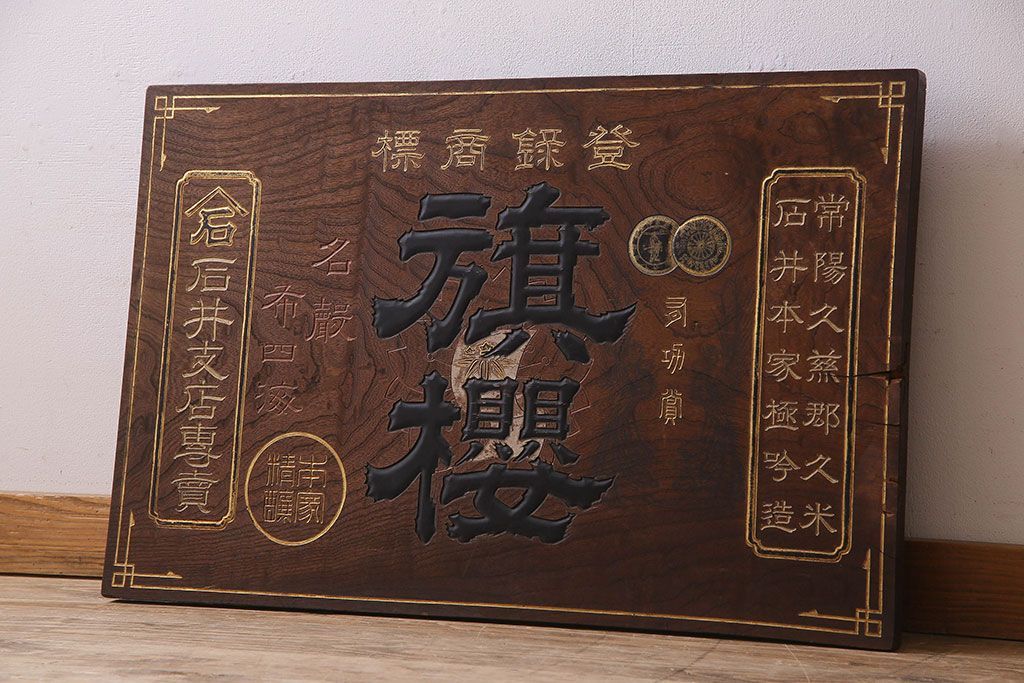 登錄商標
常陽久慈郡久米
石井本家極吟造
有功賞
旗櫻
名聲
布四海
本家
精釀
石
石井支店專賣